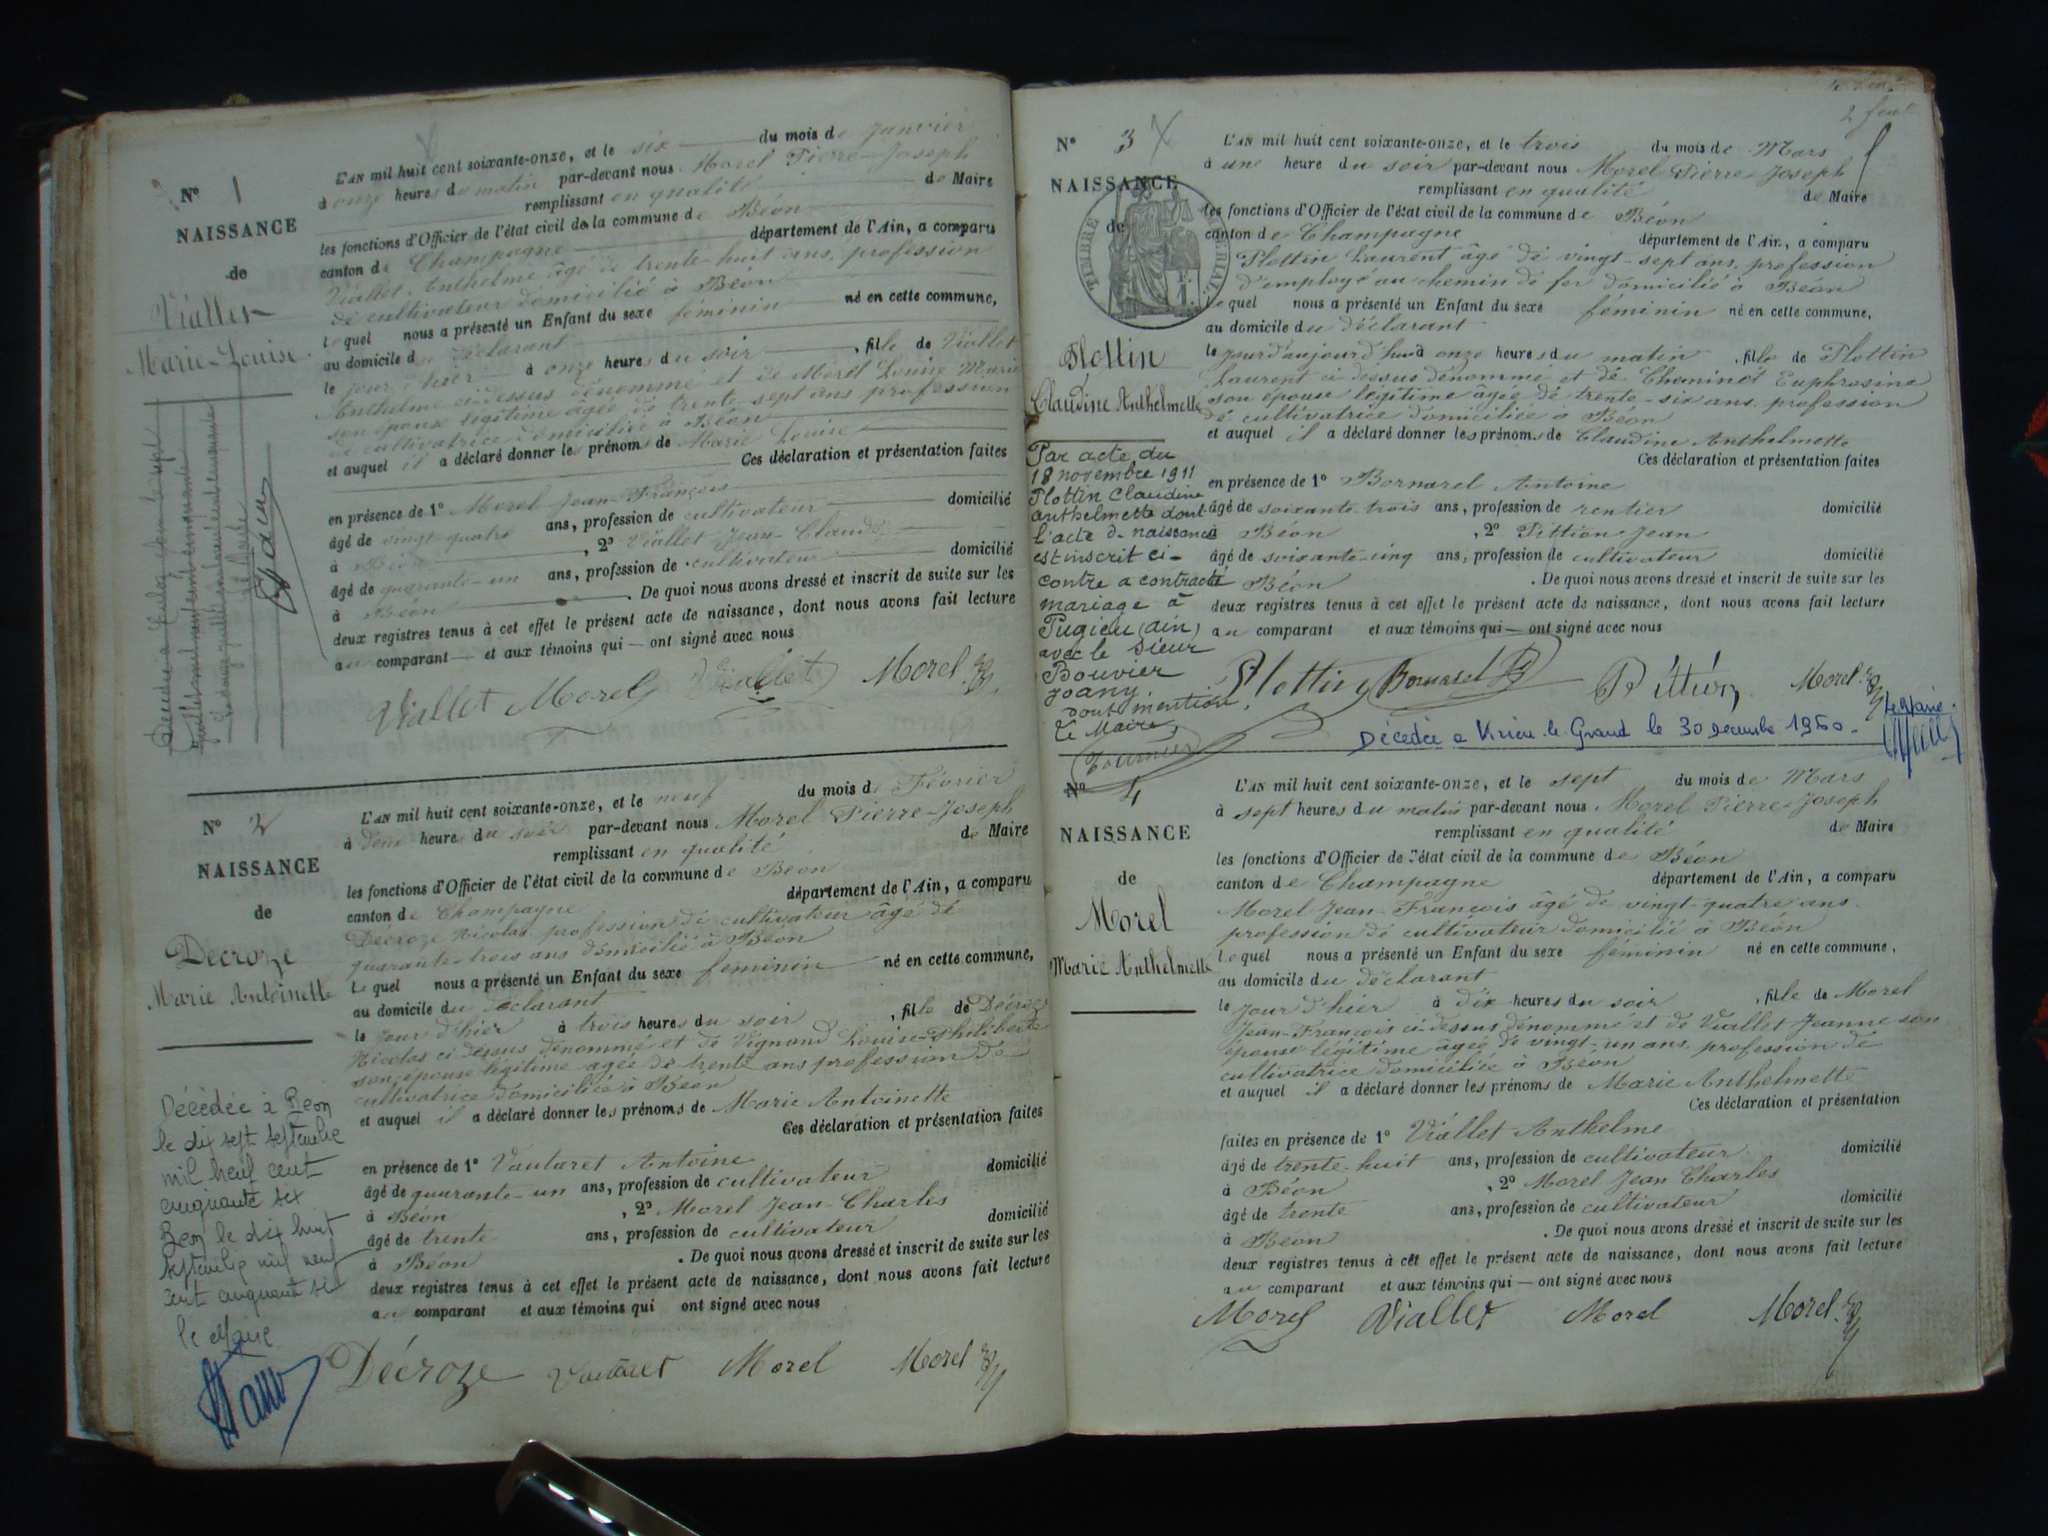 N° 1
NAISSANCE
de
Viallet
Marie-Louise
L'AN mil huit cent soixante-onze, et le six du mois de Janvier
à onze heures du matin par-devant nous Morel Pierre-Joseph
remplissant en qualité de Maire
les fonctions d'Officier de l'état civil de la commune de Béon
canton de Champagne département de l'Ain, a comparu
Viallet Anthelme âgé de trente-huit ans, profession
de cultivateur domicilié à Béon
lequel nous a présenté un Enfant du sexe féminin né en cette commune,
au domicile du déclarant
le jour d'hier à onze heures du soir, fille de Viallet
Anthelme ci-dessus dénommé et de Morel Louise Marie
son épouse légitime âgée de trente-sept ans profession
de cultivatrice domiciliée à Béon
et auquel il a déclaré donner les prénoms de Marie Louise
Ces déclaration et présentation faites
en présence de 1° Morel Jean-François
âgé de vingt-quatre ans, profession de cultivateur domicilié
à Béon, 2° Viallet Jean-Claude
âgé de quarante-un ans, profession de cultivateur domicilié
à Béon. De quoi nous avons dressé et inscrit de suite sur les
deux registres tenus à cet effet le présent acte de naissance, dont nous avons fait lecture
au comparant — et aux témoins qui — ont signé avec nous
Viallet Morel Viallet Morel
N° 2
NAISSANCE
de
Decroze
Marie Antoinette
Décédée à Béon
le dix sept septembre
mil neuf cent
cinquante six
Béon le dix huit
septembre mil neuf
cent cinquante six
le Maire
L'AN mil huit cent soixante-onze, et le neuf du mois de Février
à deux heures du soir par-devant nous Morel Pierre-Joseph
remplissant en qualité de Maire
les fonctions d'Officier de l'état civil de la commune de Béon
canton de Champagne département de l'Ain, a comparu
Décroze Nicolas profession de cultivateur âgé de
quarante-trois ans domicilié à Béon
lequel nous a présenté un Enfant du sexe féminin né en cette commune,
au domicile du déclarant
le jour d'hier à trois heures du soir, fille de Décroze
Nicolas ci-dessus dénommé et de Vignond Louise-Philiberte
son épouse légitime âgée de trente ans profession de
cultivatrice domiciliée à Béon
et auquel il a déclaré donner les prénoms de Marie Antoinette
Ces déclaration et présentation faites
en présence de 1° Vautaret Antoine
âgé de quarante-un ans, profession de cultivateur domicilié
à Béon, 2° Morel Jean-Charles
âgé de trente ans, profession de cultivateur domicilié
à Béon. De quoi nous avons dressé et inscrit de suite sur les
deux registres tenus à cet effet le présent acte de naissance, dont nous avons fait lecture
au comparant et aux témoins qui ont signé avec nous
Décroze Vautaret Morel Morel
2 feuil
N° 3
NAISSANCE
de
TIMBRE
Plottin
Claudine Anthelmette
Par acte du
18 novembre 1911
Plottin Claudine
anthelmette dont
l'acte de naissance
est inscrit ci-
contre a contracté
mariage à
Pugieu (ain)
avec le sieur
Bouvier
Joany.
dont mention.
Le Maire
L'AN mil huit cent soixante-onze, et le trois du mois de Mars
à une heure du soir par-devant nous Morel Pierre-Joseph
remplissant en qualité de Maire
les fonctions d'Officier de l'état civil de la commune de Béon
canton de Champagne département de l'Ain, a comparu
Plottin Laurent âgé de vingt-sept ans, profession
d'employé au chemin de fer domicilié à Béon
lequel nous a présenté un Enfant du sexe féminin né en cette commune,
au domicile du déclarant
le jourd'aujourd'hui à onze heures du matin, fille de Plottin
Laurent ci-dessus dénommé et de Cheminet Euphrosine
son épouse légitime âgée de trente-six ans, profession
de cultivatrice domiciliée à Béon
et auquel il a déclaré donner les prénoms de Claudine Anthelmette
Ces déclaration et présentation faites
en présence de 1° Bornarel Antoine
âgé de soixante-trois ans, profession de rentier domicilié
à Béon, 2° Pittion Jean
âgé de soixante-cinq ans, profession de cultivateur domicilié
à Béon. De quoi nous avons dressé et inscrit de suite sur les
deux registres tenus à cet effet le présent acte de naissance, dont nous avons fait lecture
au comparant et aux témoins qui — ont signé avec nous
Plottin Bornarel Pittion Morel
Décédée à Virieu-le-Grand le 30 décembre 1960. Le Maire.
N° 4
NAISSANCE
de
Morel
Marie Anthelmette
L'AN mil huit cent soixante-onze, et le sept du mois de Mars
à sept heures du matin par-devant nous Morel Pierre-Joseph
remplissant en qualité de Maire
les fonctions d'Officier de l'état civil de la commune de Béon
canton de Champagne département de l'Ain, a comparu
Morel Jean-François âgé de vingt-quatre ans
profession de cultivateur domicilié à Béon
lequel nous a présenté un Enfant du sexe féminin né en cette commune,
au domicile du déclarant
le jour d'hier à dix heures du soir, fille de Morel
Jean-François ci-dessus dénommé et de Viallet Jeanne son
épouse légitime âgée de vingt-un ans, profession de
cultivatrice domiciliée à Béon
et auquel il a déclaré donner les prénoms de Marie Anthelmette
Ces déclaration et présentation
faites en présence de 1° Viallet Anthelme
âgé de trente-huit ans, profession de cultivateur domicilié
à Béon, 2° Morel Jean Charles
âgé de trente ans, profession de cultivateur domicilié
à Béon. De quoi nous avons dressé et inscrit de suite sur les
deux registres tenus à cet effet le présent acte de naissance, dont nous avons fait lecture
au comparant et aux témoins qui — ont signé avec nous
Morel Viallet Morel Morel